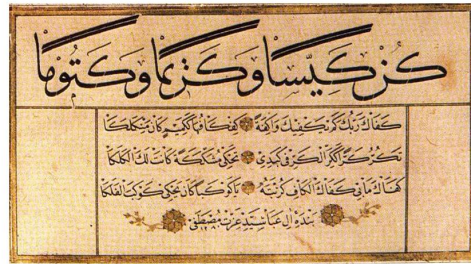 كُنْ كَيِّسًا وَكَرِيمًا وَكَتُومًا
كفاك ربك كم يكفيك واكفة كفكافها ككمين كان من كلكا
تكر كرا ككر الكر في كبدي تحكي مشكشكة لك
كفاك ما بي كفاك الكاف كربته يا كوكبا كان يحكي كوكب الفلكا
بنده آل عبا سيد عزت مصطفى